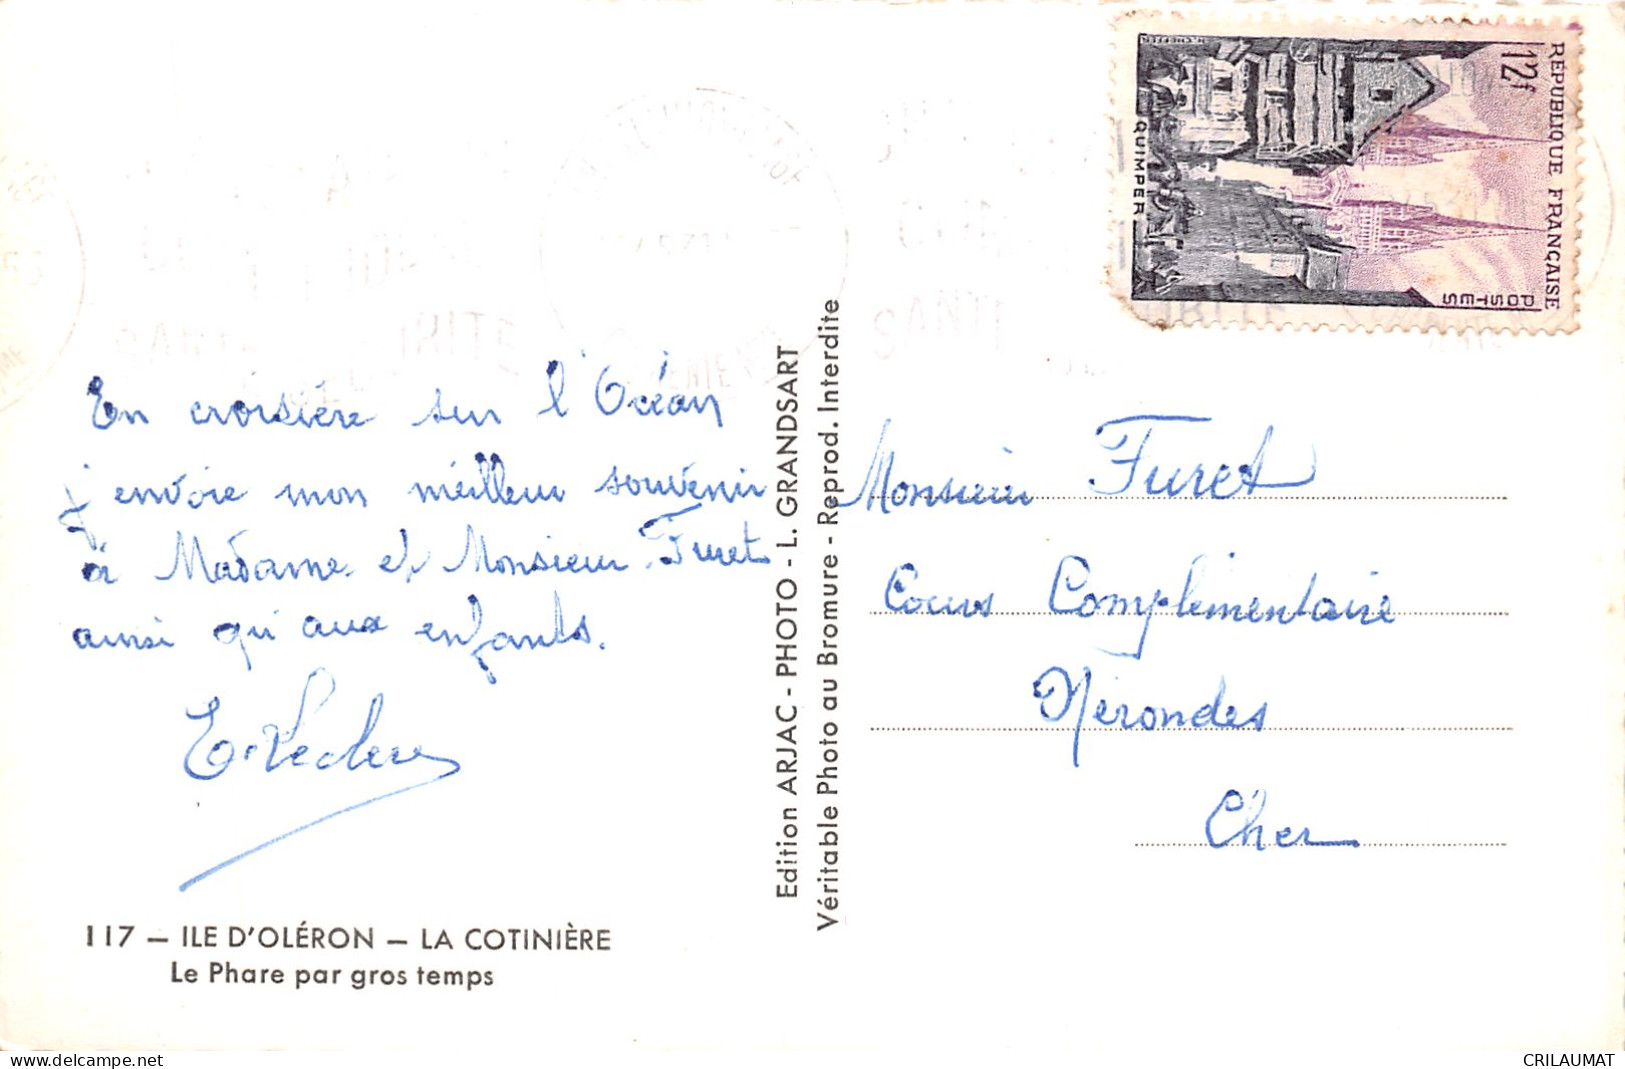 En croisière sur l'Océan
j'envoie mon meilleur souvenir
à Madame et Monsieur Furet
ainsi qu'aux enfants.
E. Leclerc
117 — ILE D'OLÉRON — LA COTINIÈRE
Le Phare par gros temps
Edition ARJAC - PHOTO - L. GRANDSART
Véritable Photo au Bromure - Reprod. Interdite
REPUBLIQUE FRANÇAISE
12f
POSTES
QUIMPER
Monsieur Furet
Cours Complémentaire
Nérondes
Cher
delcampe.net
CRILAUMAT